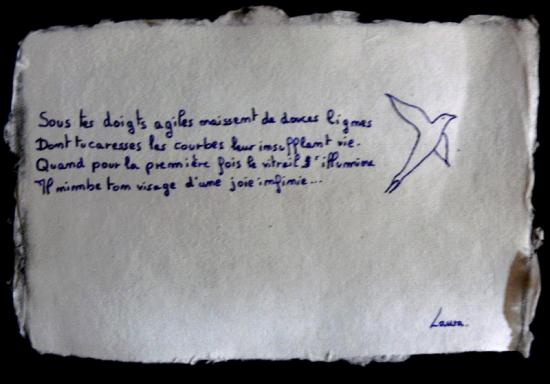 Sous tes doigts agiles naissent de douces lignes
Dont tu caresses les courbes leur insufflant vie.
Quand pour la première fois le vitrail s'illumine
Il nimbe ton visage d'une joie infinie...
Laura.